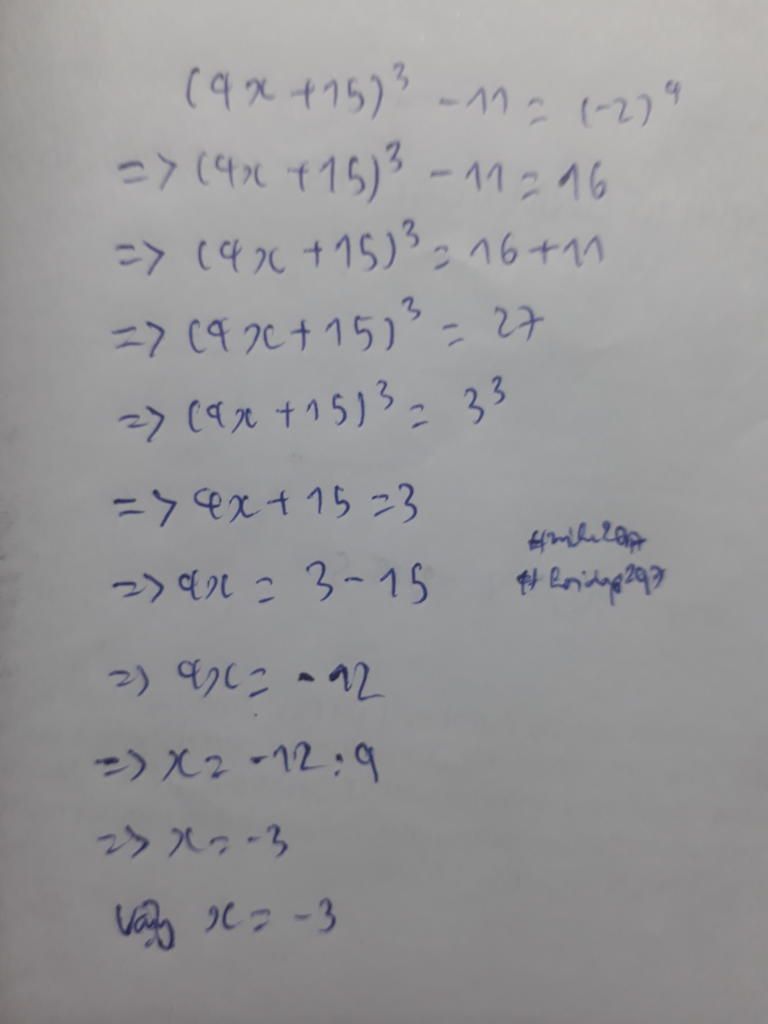 (4x + 15)³ - 11 = (-2)⁴
=> (4x + 15)³ - 11 = 16
=> (4x + 15)³ = 16 + 11
=> (4x + 15)³ = 27
=> (4x + 15)³ = 3³
=> 4x + 15 = 3
=> 4x = 3 - 15
=> 4x = -12
=> x = -12 : 4
=> x = -3
Vậy x = -3